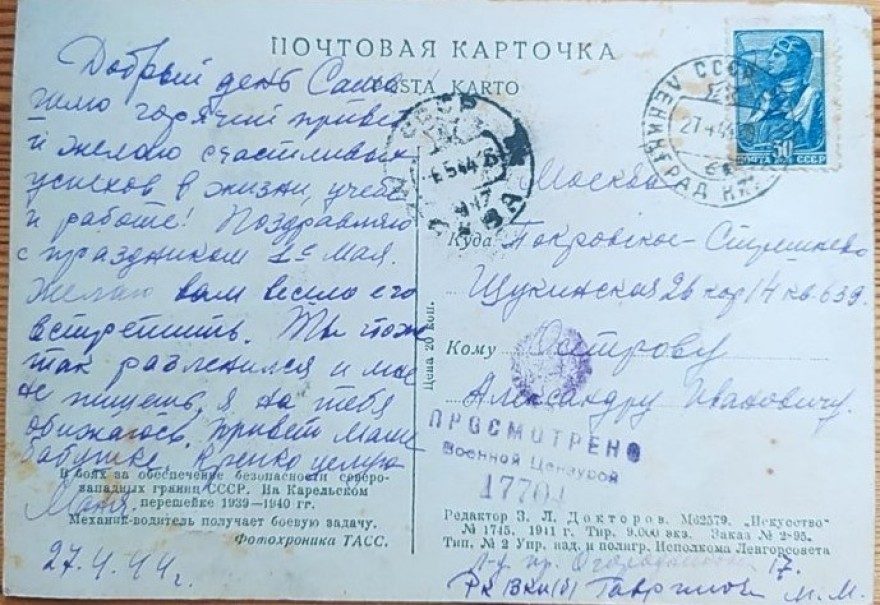 ПОЧТОВАЯ КАРТОЧКА
POŜTA KARTO
Добрый день Саша
шлю горячий привет
и желаю счастливых
успехов в жизни, учебе
и работе! Поздравляю
с праздником 1ᵉ Мая.
Желаю вам весело его
встретить. Ты тоже
так разленился и мне
не пишешь, я на тебя
обижаюсь. Привет Маше
бабушке. Крепко целую
Маня.
27.4.44г.
В боях за обеспечение безопасности северо-
западных границ СССР. На Карельском
перешейке 1939—1940 гг.
Механик-водитель получает боевую задачу.
Фотохроника ТАСС.
Цена 20 коп.
СССР
ЛЕНИНГРАД
27.4.44
ПОЧТА СССР
50
СССР
6.5.44
Москва
Куда Покровское-Стрешнево
Щукинская 26 кор 14 кв. 639.
Кому Острову
Александру Ивановичу.
ПРОСМОТРЕНО
Военной Цензурой
Редактор З. Л. Докторов. М62579. „Искусство“
№ 1745. 1941 г. Тир. 9.000 экз. Заказ № 2-95.
Тип. № 2 Упр. изд. и полигр. Исполкома Ленгорсовета
Л-д пр. 17.
РК ВКП(б) М. М.